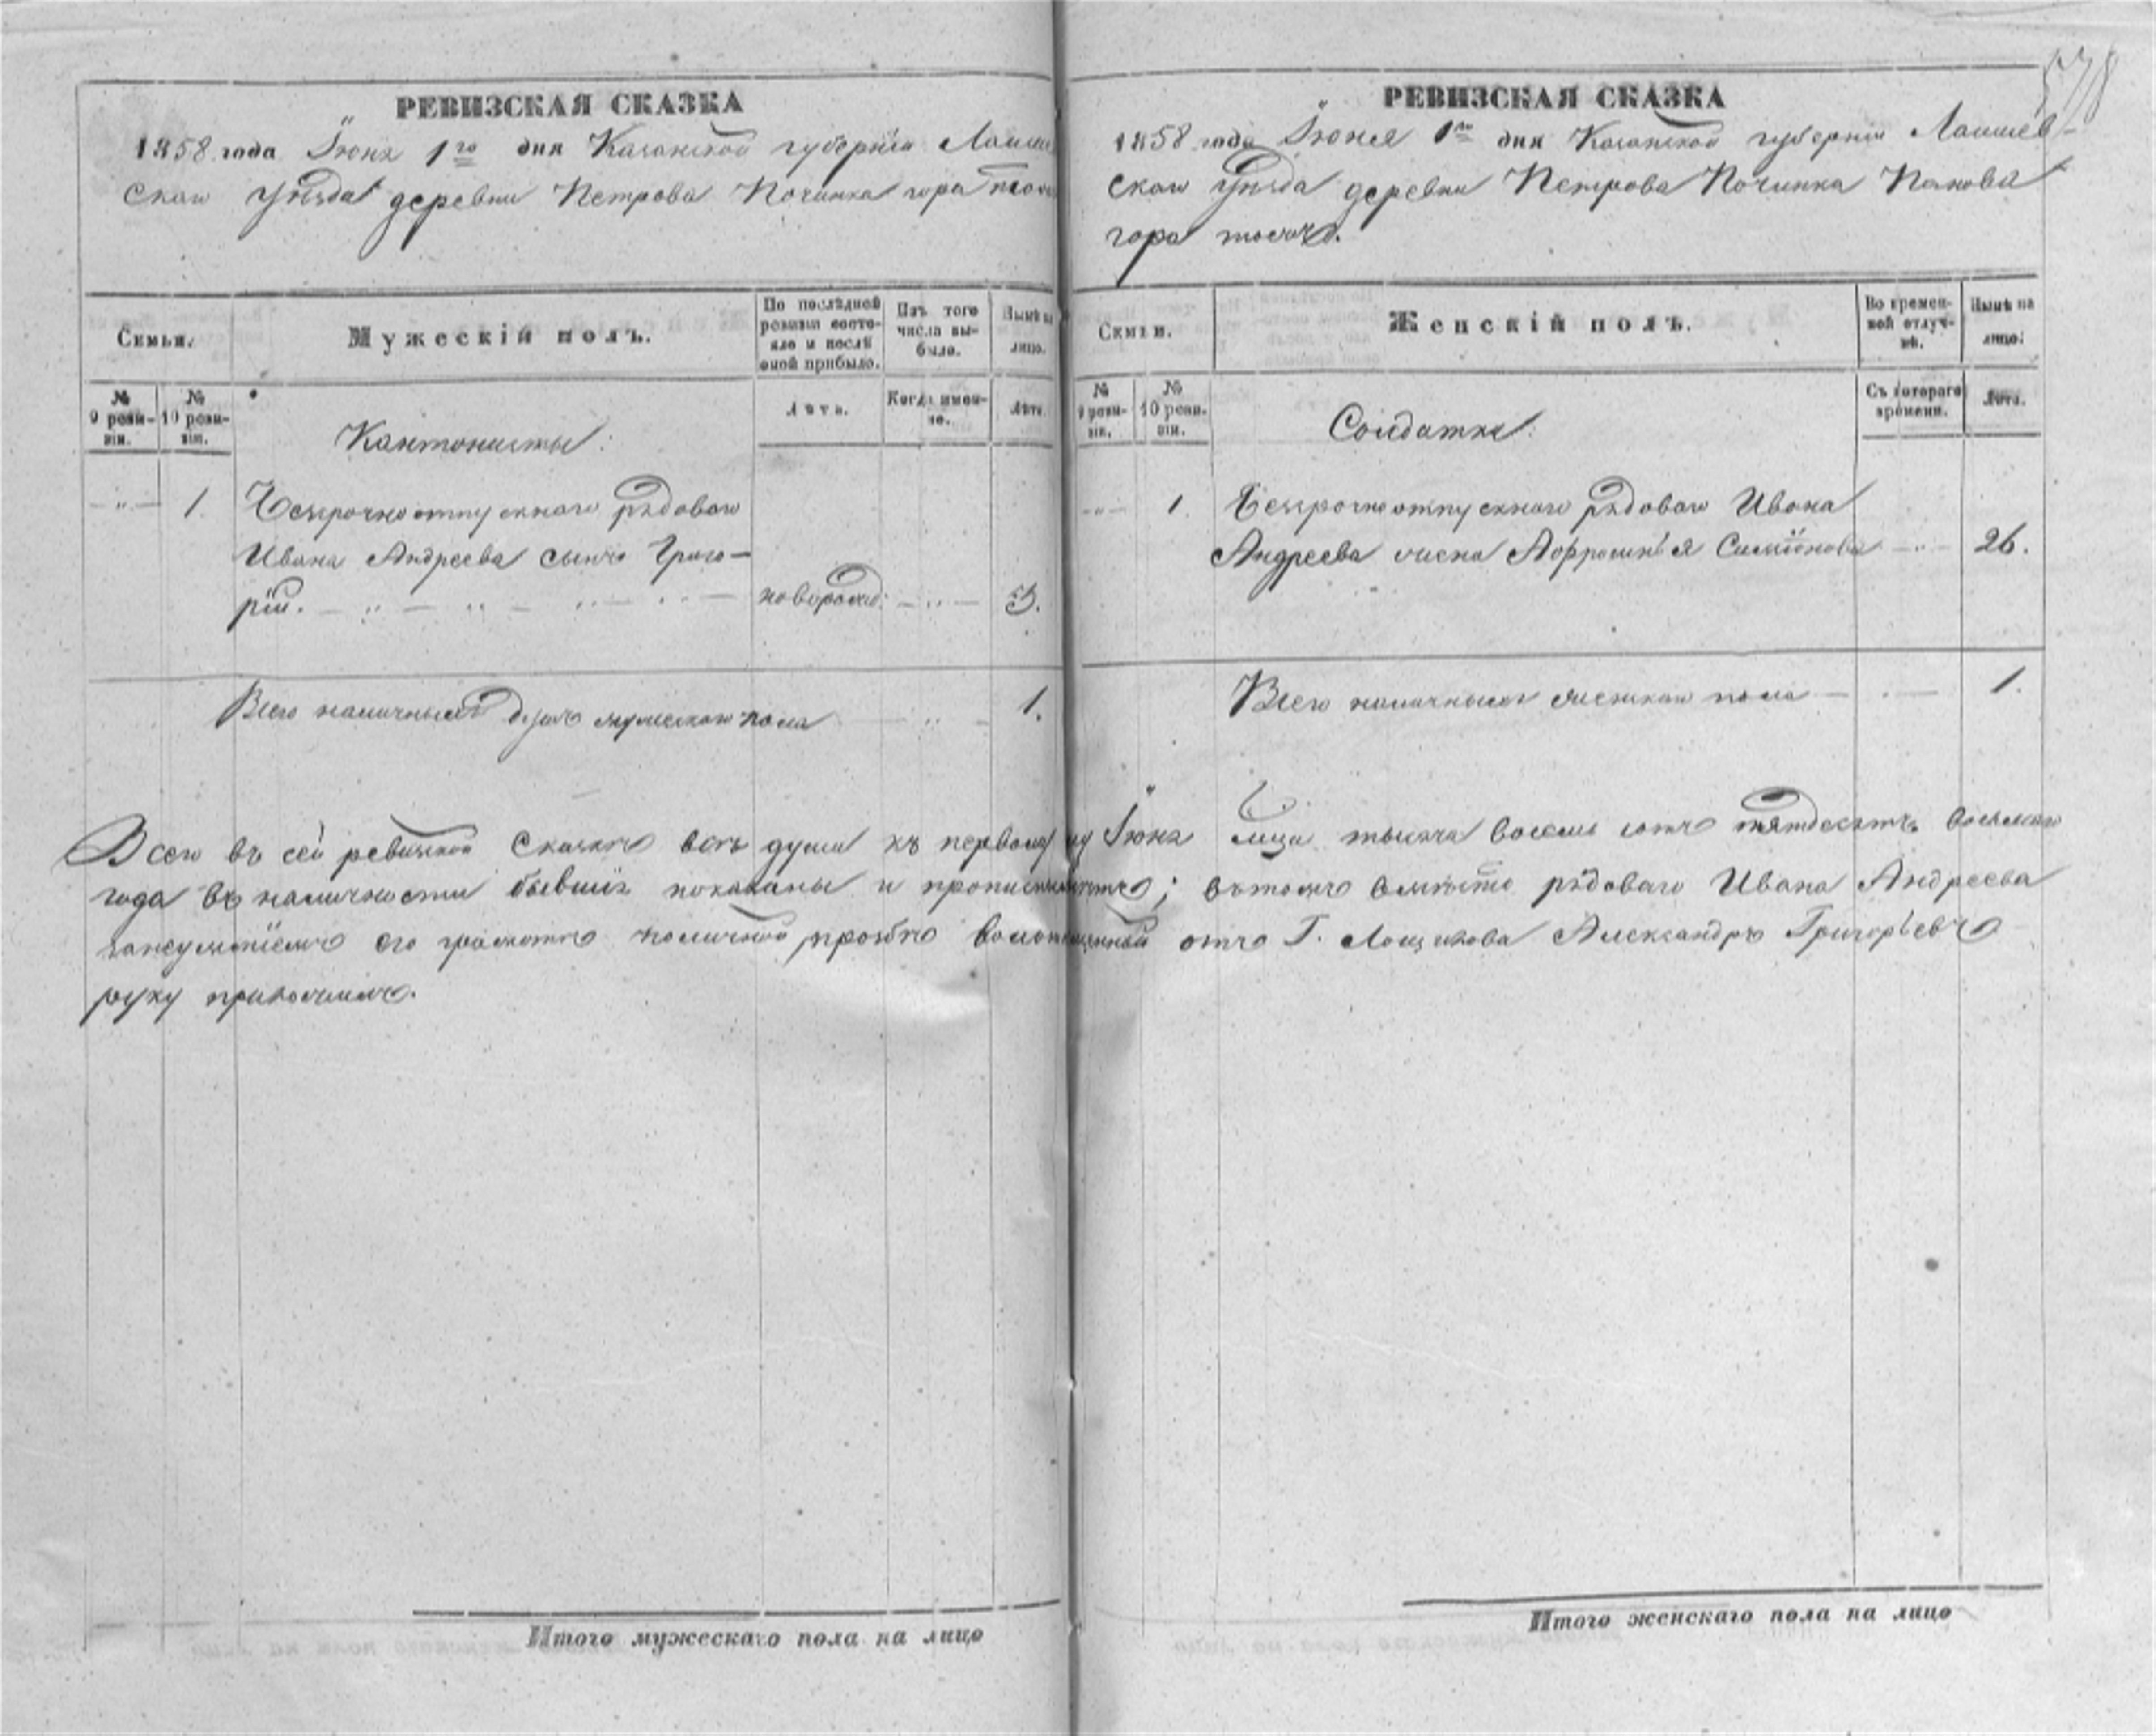 578
РЕВИЗСКАЯ СКАЗКА
1858 года Іюня 1го дня Казанской губерніи Лаише
скаго Уѣзда деревни Петрова Починка гора тожъ
Семьи.
Мужескій полъ.
По послѣдней ревизіи состояло и послѣ оной прибыло.
Изъ того числа выбыло.
Нынѣ на лицо.
№ 9 ревизіи.
№ 10 ревизіи.
Лѣта.
Когда именно.
Лѣта.
Кантонисты:
— " — 1. Безсрочноотпускнаго рядоваго
Ивана Андреева сынъ Григо-
рій. — " — " — " — " — новорожд: — " — 3.
Всего наличныхъ душъ мужескаго пола — " — 1.
РЕВИЗСКАЯ СКАЗКА
1858 года Іюня 1го дня Казанской губерніи Лаишев-
скаго Уѣзда деревни Петрова Починка Панова
гора тожъ.
Семьи.
Женскій полъ.
Во временной отлучкѣ.
Нынѣ на лицо.
№ 9 ревизіи.
№ 10 ревизіи.
Съ котораго времени.
Лѣта.
Солдатки:
— " — 1. Безсрочноотпускнаго рядоваго Ивана
Андреева жена Афросинья Симіонова — " — 26.
Всего наличныхъ женскаго пола — " — 1.
Всего въ сей ревизской сказкѣ всѣ души къ первому Іюня тысяча восемь сотъ пятдесятъ восьмаго
года въ наличности бывшіе показаны и прописныхъ нѣтъ; вътомъ вмѣсто рядоваго Ивана Андреева
занеумѣніемъ его грамотѣ по личной прозбѣ отъ Г. Александръ Григорьевъ
руку приложилъ.
Итого мужескаго пола на лицо
Итого женскаго пола на лицо